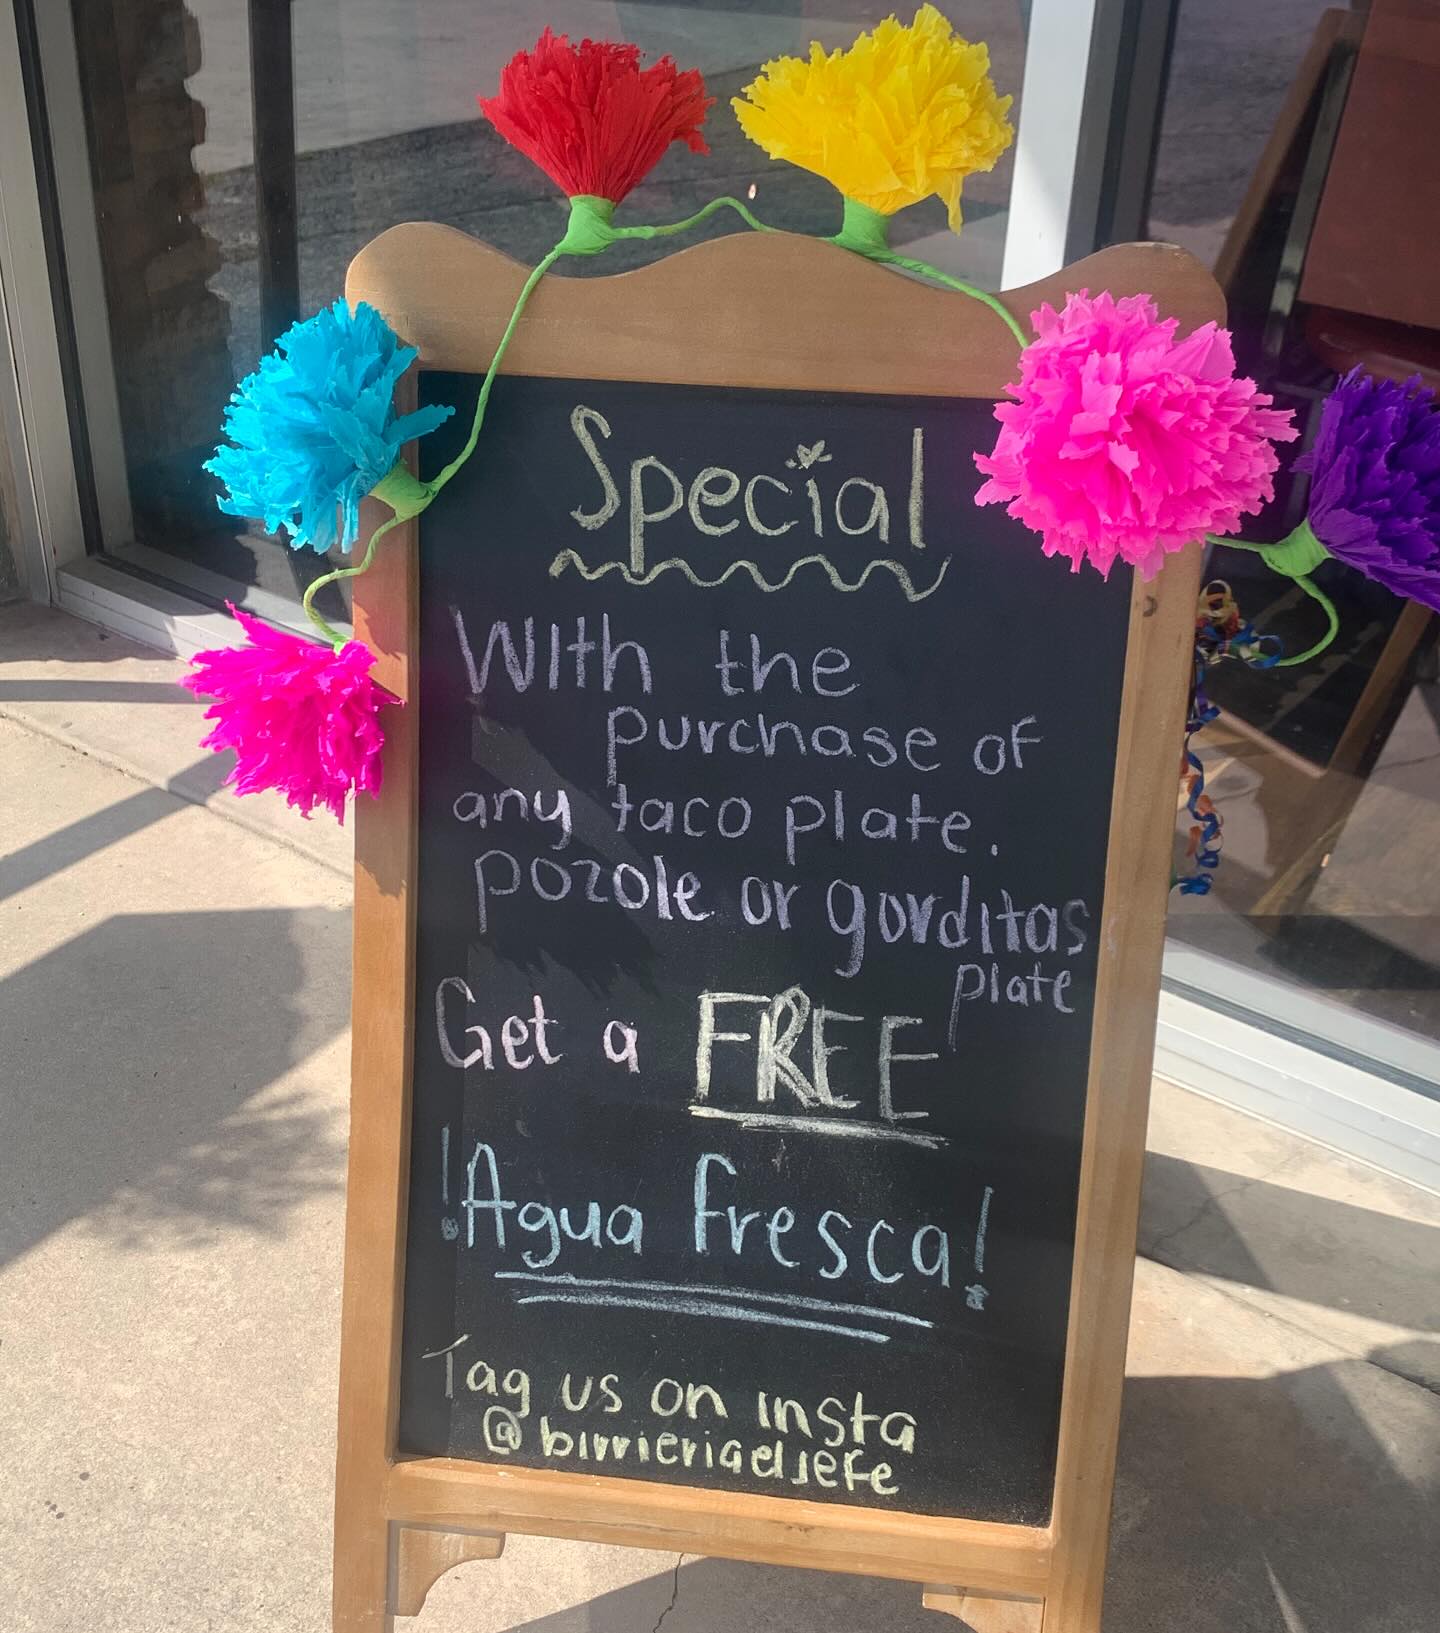 Special
With the
purchase of
any taco plate.
pozole or gorditas
plate
Get a FREE
!Agua fresca!
Tag us on insta
@birrieriaeljefe